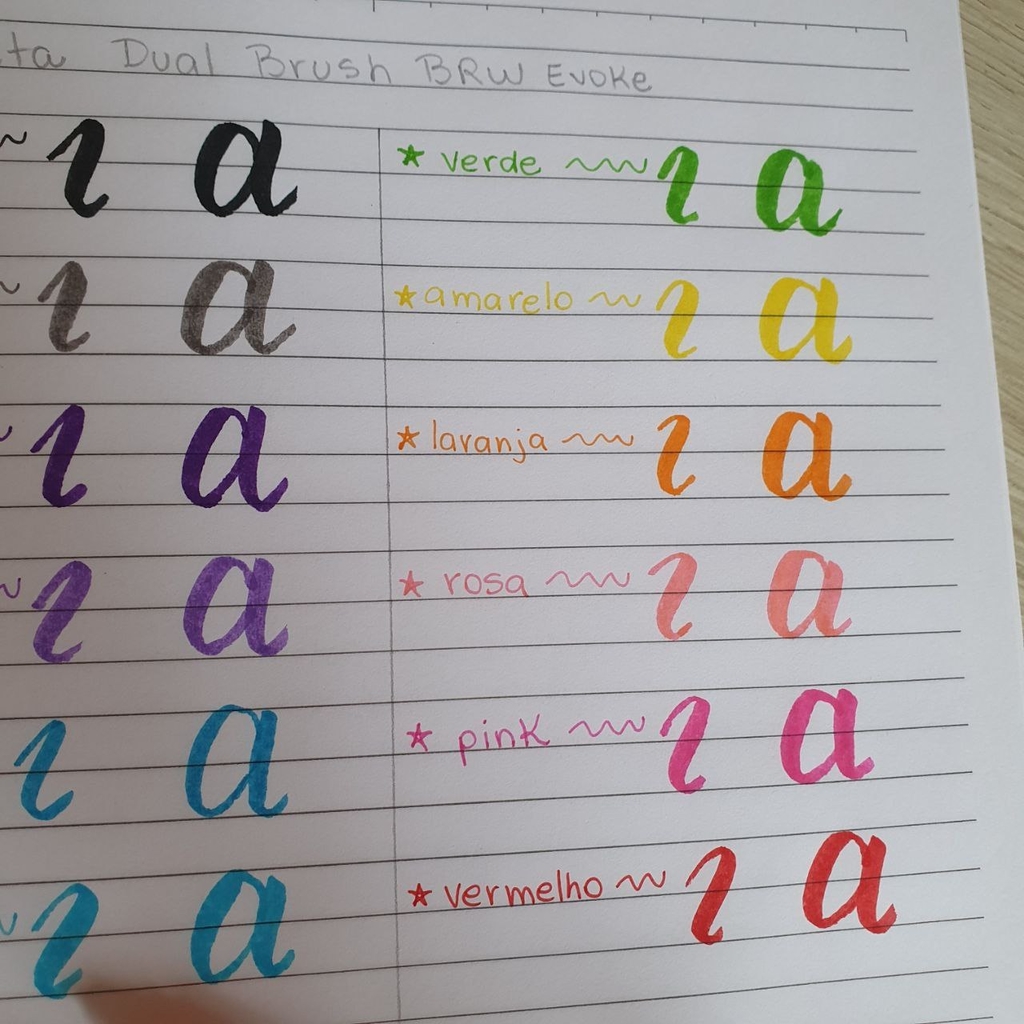 Dual Brush BRW Evoke
ı a
ı a
ı a
ı a
ı a
ı a
★ verde ı a
★ amarelo ı a
★ laranja ı a
★ rosa ı a
★ pink ı a
★ vermelho ı a